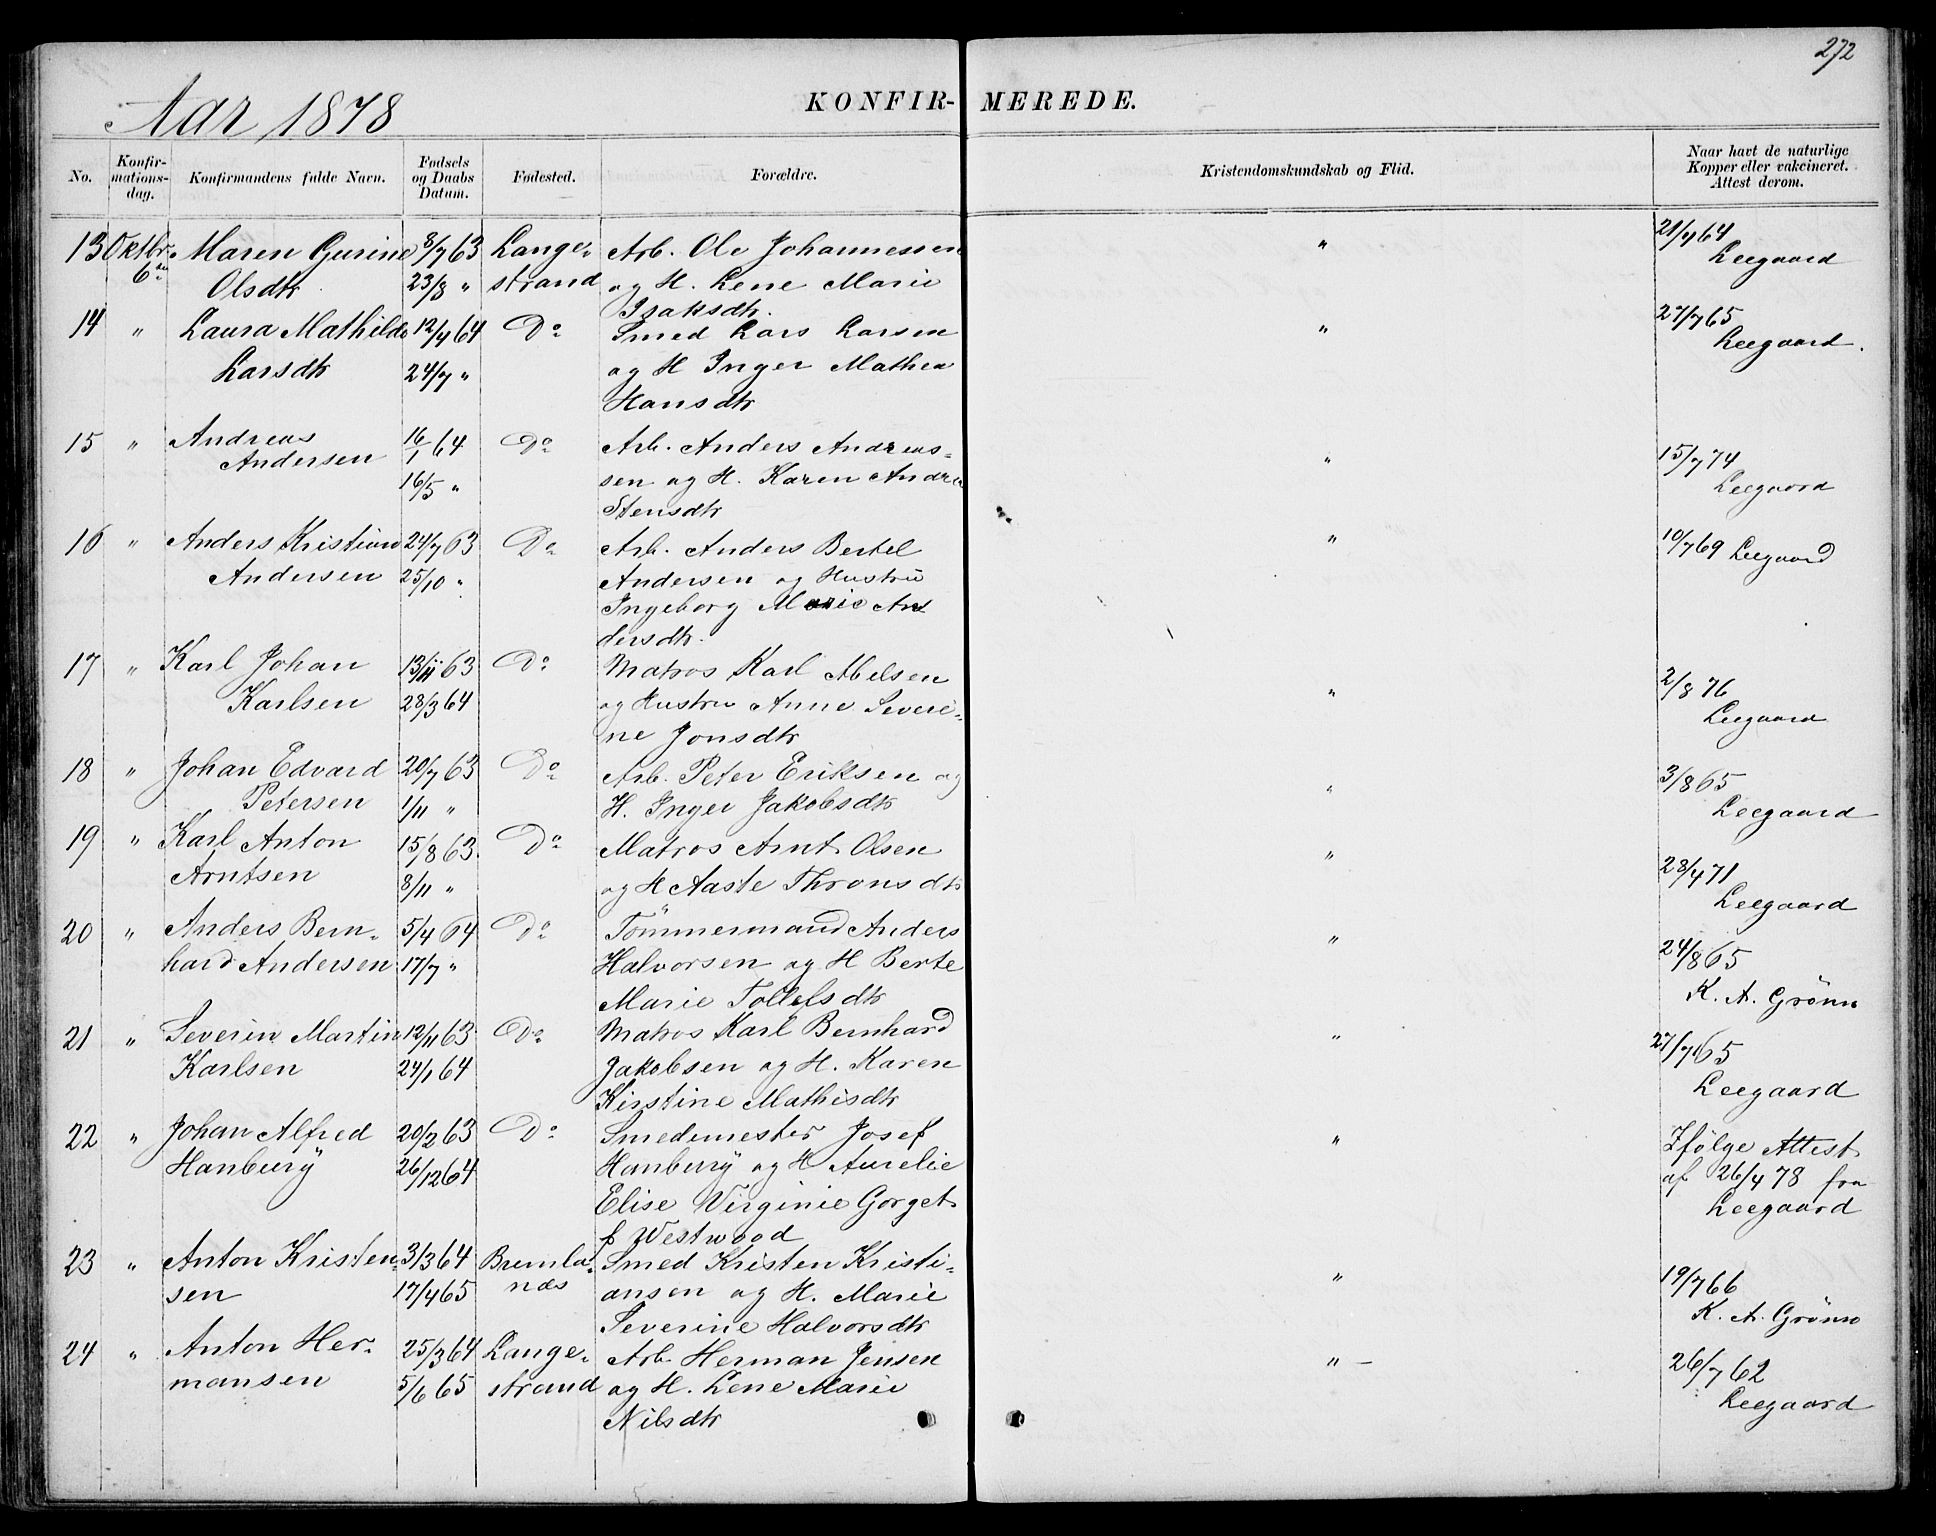 272
Aar 1878
KONFIR- MEREDE.
No. Konfir-mations-dag. Konfirmandens fulde Navn. Fødsels og Daabs Datum. Fødested. Forældre. Kristendomskundskab og Flid. Naar havt de naturlige Kopper eller vakcineret. Attest derom.
13 Oktbr. Maren Gurine 8/7 63 Lange- Arb. Ole Johannessen " 21/7 64
6te Olsdtr 23/8 " strand og H. Lene Marie Leegaard
Isaksdtr.
14 " Laura Mathilde 12/4 64 Do Smed Lars Larsen " 27/7 65
Larsdtr 24/7 " og H Inger Mathea Leegaard.
Hansdtr
15 " Andreas 16/1 64 Do Arb. Anders Andreas- " 15/7 74
Andersen 16/5 " sen og H. Karen Andrea Leegaard
Stensdtr
16 " Anders Kristian 24/7 63 Do Arb. Anders Bertel " 10/7 69 Leegaard
Andersen 25/10 " Andersen og Hustru
Ingeborg Marie An
dersdtr.
17 " Karl Johan 13/11 63 Do Matros Karl Abelsen " 2/8 76
Karlsen 28/3 64 og Hustru Anne Severi- Leegaard
ne Jonsdtr
18 " Johan Edvard 20/7 63 Do Arb. Peter Eriksen og " 3/8 65
Petersen 1/11 " H. Inger Jakobsdtr Leegaard
19 " Karl Anton 15/8 63. Do Matros Arnt Olsen " 28/4 71
Arntsen 8/11 " og H Aaste Thronsdtr Leegaard
20 " Anders Bern- 5/4 64 Do Tömmermand Anders " 24/8 65
hard Andersen 17/7 " Halvorsen og H Berte K. A. Grönn
Marie Tollefsdtr
21 " Severin Martin 12/11 63 Do Matros Karl Bernhard " 27/7 65
Karlsen 24/1 64 Jakobsen og H. Karen Leegaard
Kirstine Mathisdtr
22 " Johan Alfred 20/2 63 Do Smedemester Josef " Ifölge Attest
Hanburÿ 26/12 64 Hanburÿ og H Aurelie af 26/4 78 fra
Elise Virginie Gorget Leegaard
f Westwood
23 " Anton Kristen- 3/3 64 Brunla- Smed Kristen Kristi- " 19/7 66
sen 17/4 65 næs ansen og H. Marie K. A. Grönn
Severine Halvorsdtr
24 " Anton Her- 25/3 64 Lange- Arb Herman Jensen " – 26/7 62
mansen 5/6 65 strand og H. Lene Marie Leegaard
Nilsdtr